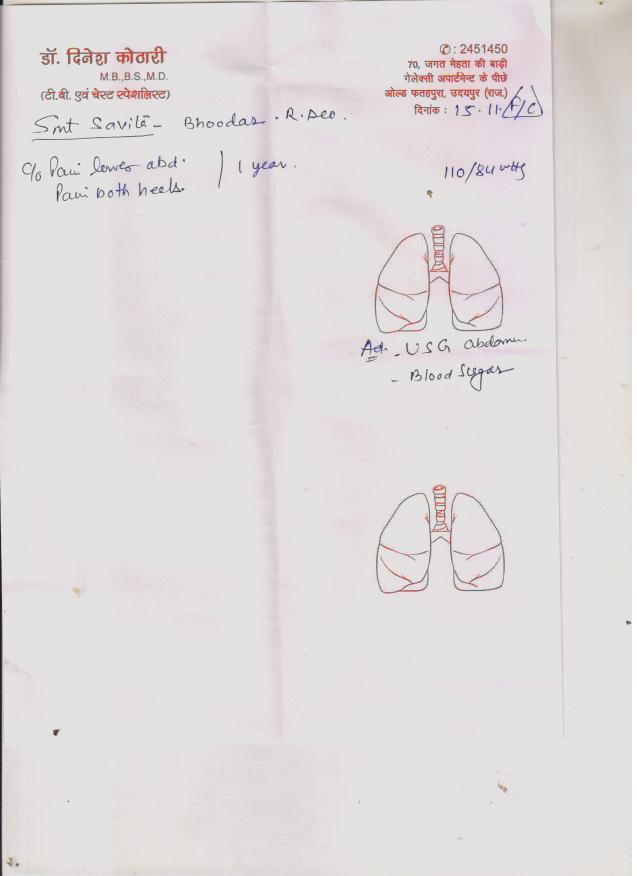 ✆: 2451450
डॉ. दिनेश कोठारी
M.B.,B.S.,M.D.
(टी.बी. एवं चेस्ट स्पेशलिस्ट)
70, जगत मेहता की बाड़ी
गेलेक्सी अपार्टमेन्ट के पीछे
ओल्ड फतहपुरा, उदयपुर (राज.)
दिनांक : 15.11.
Smt Savita - Bhoodas.
C/o Pain lower abd.
Pain both heels.
1 year.
110/84
Ad. - USG abdomen
- Blood Sugar